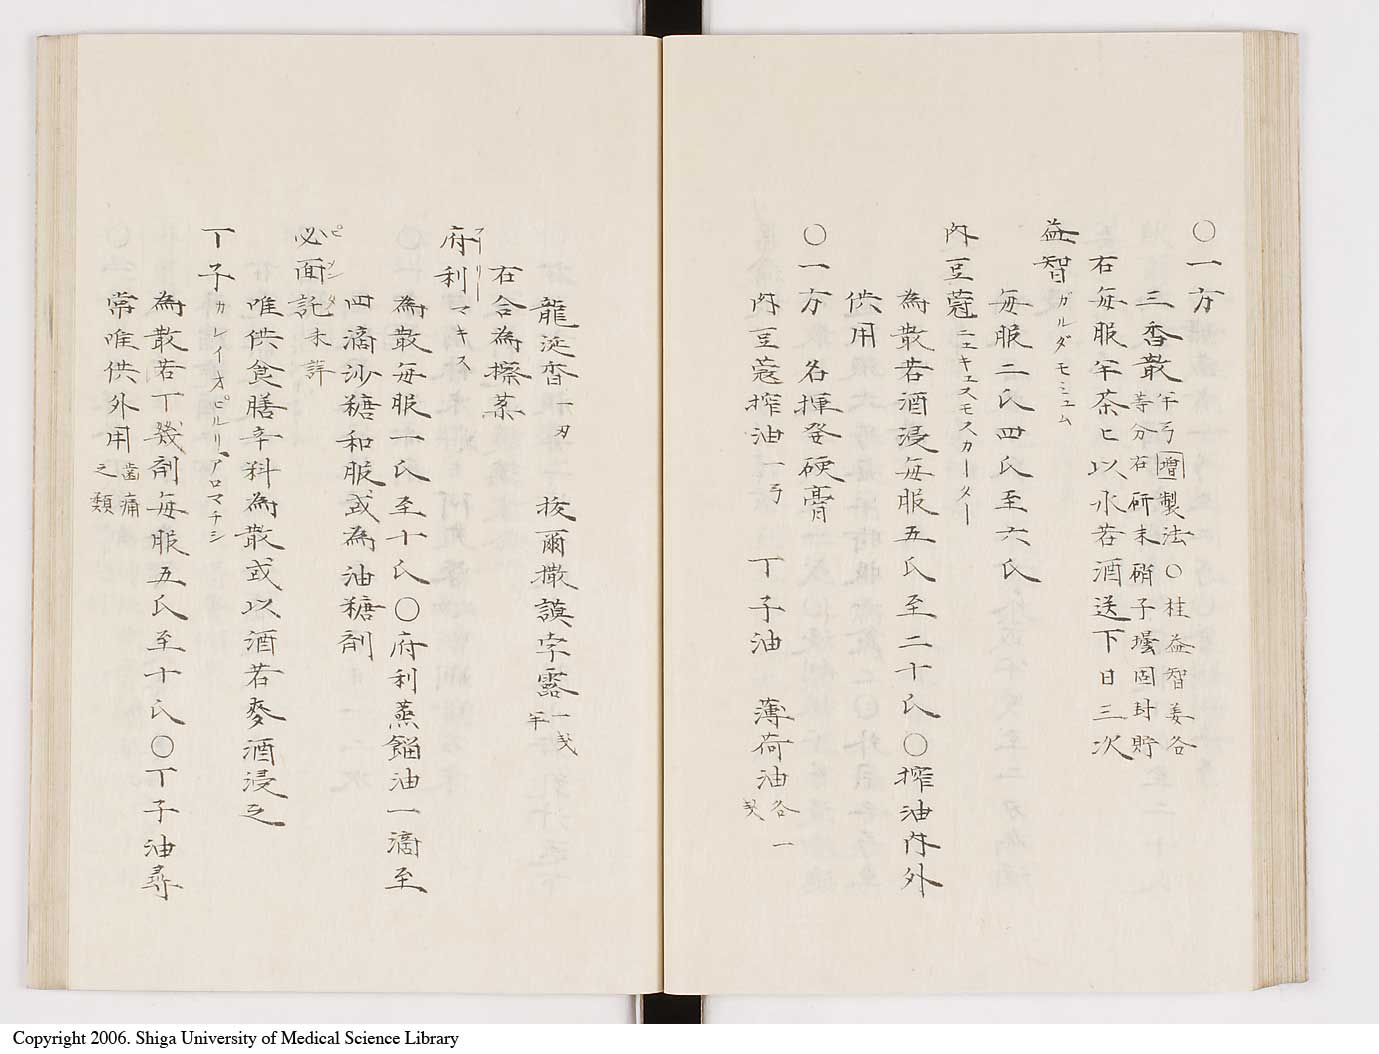 〇一方
三香散 半弓 増 製法〇桂益智姜各
等分右研末硝子壜固封貯
右毎服半茶匕以水若酒送下日三次
益智 ガルダモミュム
毎服二氏四氏至六氏
肉豆蔲 ニュキェスモスカーター
為散若酒浸毎服五氏至二十氏〇搾油内外
供用
〇一方 名揮発硬膏
肉豆蔲搾油一弓 丁子油 薄荷油各一
龍涎香一タ 抜爾撒謨孛露一戔
半
右合為擦薬
府利 マキス
フーリー
為散毎服一氏至十氏〇府利蒸餾油一滴至
四滴沙糖和服或為油糖剤
必面託 未詳
ピメンタ
唯供食膳辛料為散或以酒若麥酒浸之
丁子 カレイオピルリ、アロマチシ
為散若丁幾剤毎服五氏至十氏〇丁子油尋
常唯供外用 歯痛
之類
Copyright 2006. Shiga University of Medical Science Library